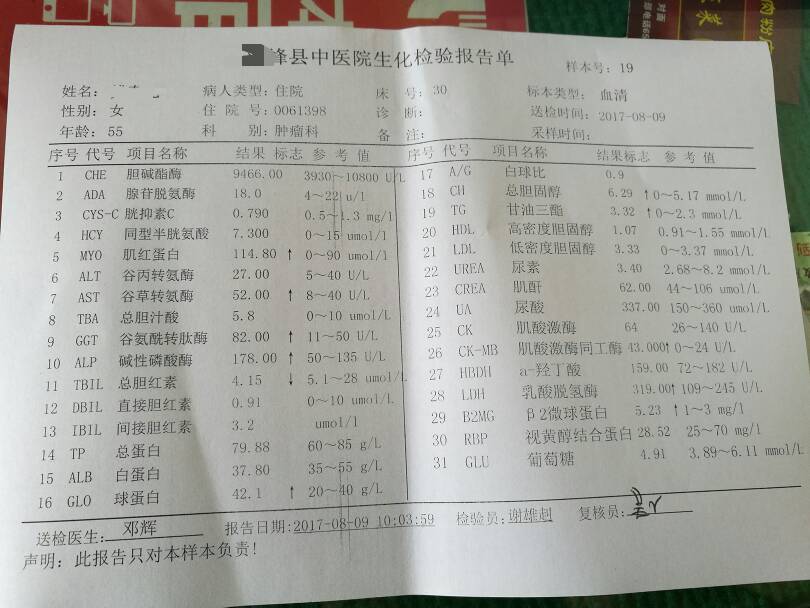 峰县中医院生化检验报告单
样本号：19
姓名： 病人类型：住院 床 号：30 标本类型： 血清
性别：女 住 院 号：0061398 诊 断： 送检时间：2017-08-09
年龄：55 科 别：肿瘤科 备 注： 采样时间：
序号 代号 项目名称 结果 标志 参 考 值
1 CHE 胆碱酯酶 9466.00 3930~10800 U/L
2 ADA 腺苷脱氨酶 18.0 4~22 u/l
3 CYS-C 胱抑素C 0.790 0.5~1.3 mg/l
4 HCY 同型半胱氨酸 7.300 0~15 umol/l
5 MYO 肌红蛋白 114.80 ↑ 0~90 umol/l
6 ALT 谷丙转氨酶 27.00 5~40 U/L
7 AST 谷草转氨酶 52.00 ↑ 8~40 U/L
8 TBA 总胆汁酸 5.8 0~10 umol/L
9 GGT 谷氨酰转肽酶 82.00 ↑ 11~50 U/L
10 ALP 碱性磷酸酶 178.00 ↑ 50~135 U/L
11 TBIL 总胆红素 4.15 ↓ 5.1~28 umol/L
12 DBIL 直接胆红素 0.91 0~10 umol/L
13 IBIL 间接胆红素 3.2 umol/l
14 TP 总蛋白 79.88 60~85 g/L
15 ALB 白蛋白 37.80 35~55 g/L
16 GLO 球蛋白 42.1 ↑ 20~40 g/L
序号 代号 项目名称 结果标志 参 考 值
17 A/G 白球比 0.9
18 CH 总胆固醇 6.29 ↑0~5.17 mmol/L
19 TG 甘油三酯 3.32 ↑0~2.3 mmol/L
20 HDL 高密度胆固醇 1.07 0.91~1.55 mmol/L
21 LDL 低密度胆固醇 3.33 0~3.37 mmol/L
22 UREA 尿素 3.40 2.68~8.2 mmol/L
23 CREA 肌酐 62.00 44~106 umol/L
24 UA 尿酸 337.00 150~360 umol/L
25 CK 肌酸激酶 64 26~140 U/L
26 CK-MB 肌酸激酶同工酶 43.000↑0~24 U/L
27 HBDH a-羟丁酸 159.00 72~182 U/L
28 LDH 乳酸脱氢酶 319.00↑109~245 U/L
29 B2MG β2微球蛋白 5.23 ↑1~3 mg/l
30 RBP 视黄醇结合蛋白 28.52 25~70 mg/l
31 GLU 葡萄糖 4.91 3.89~6.11 mmol/L
送检医生： 邓辉 报告日期：2017-08-09 10:03:59 检验员：谢雄 复核员：
声明：此报告只对本样本负责！